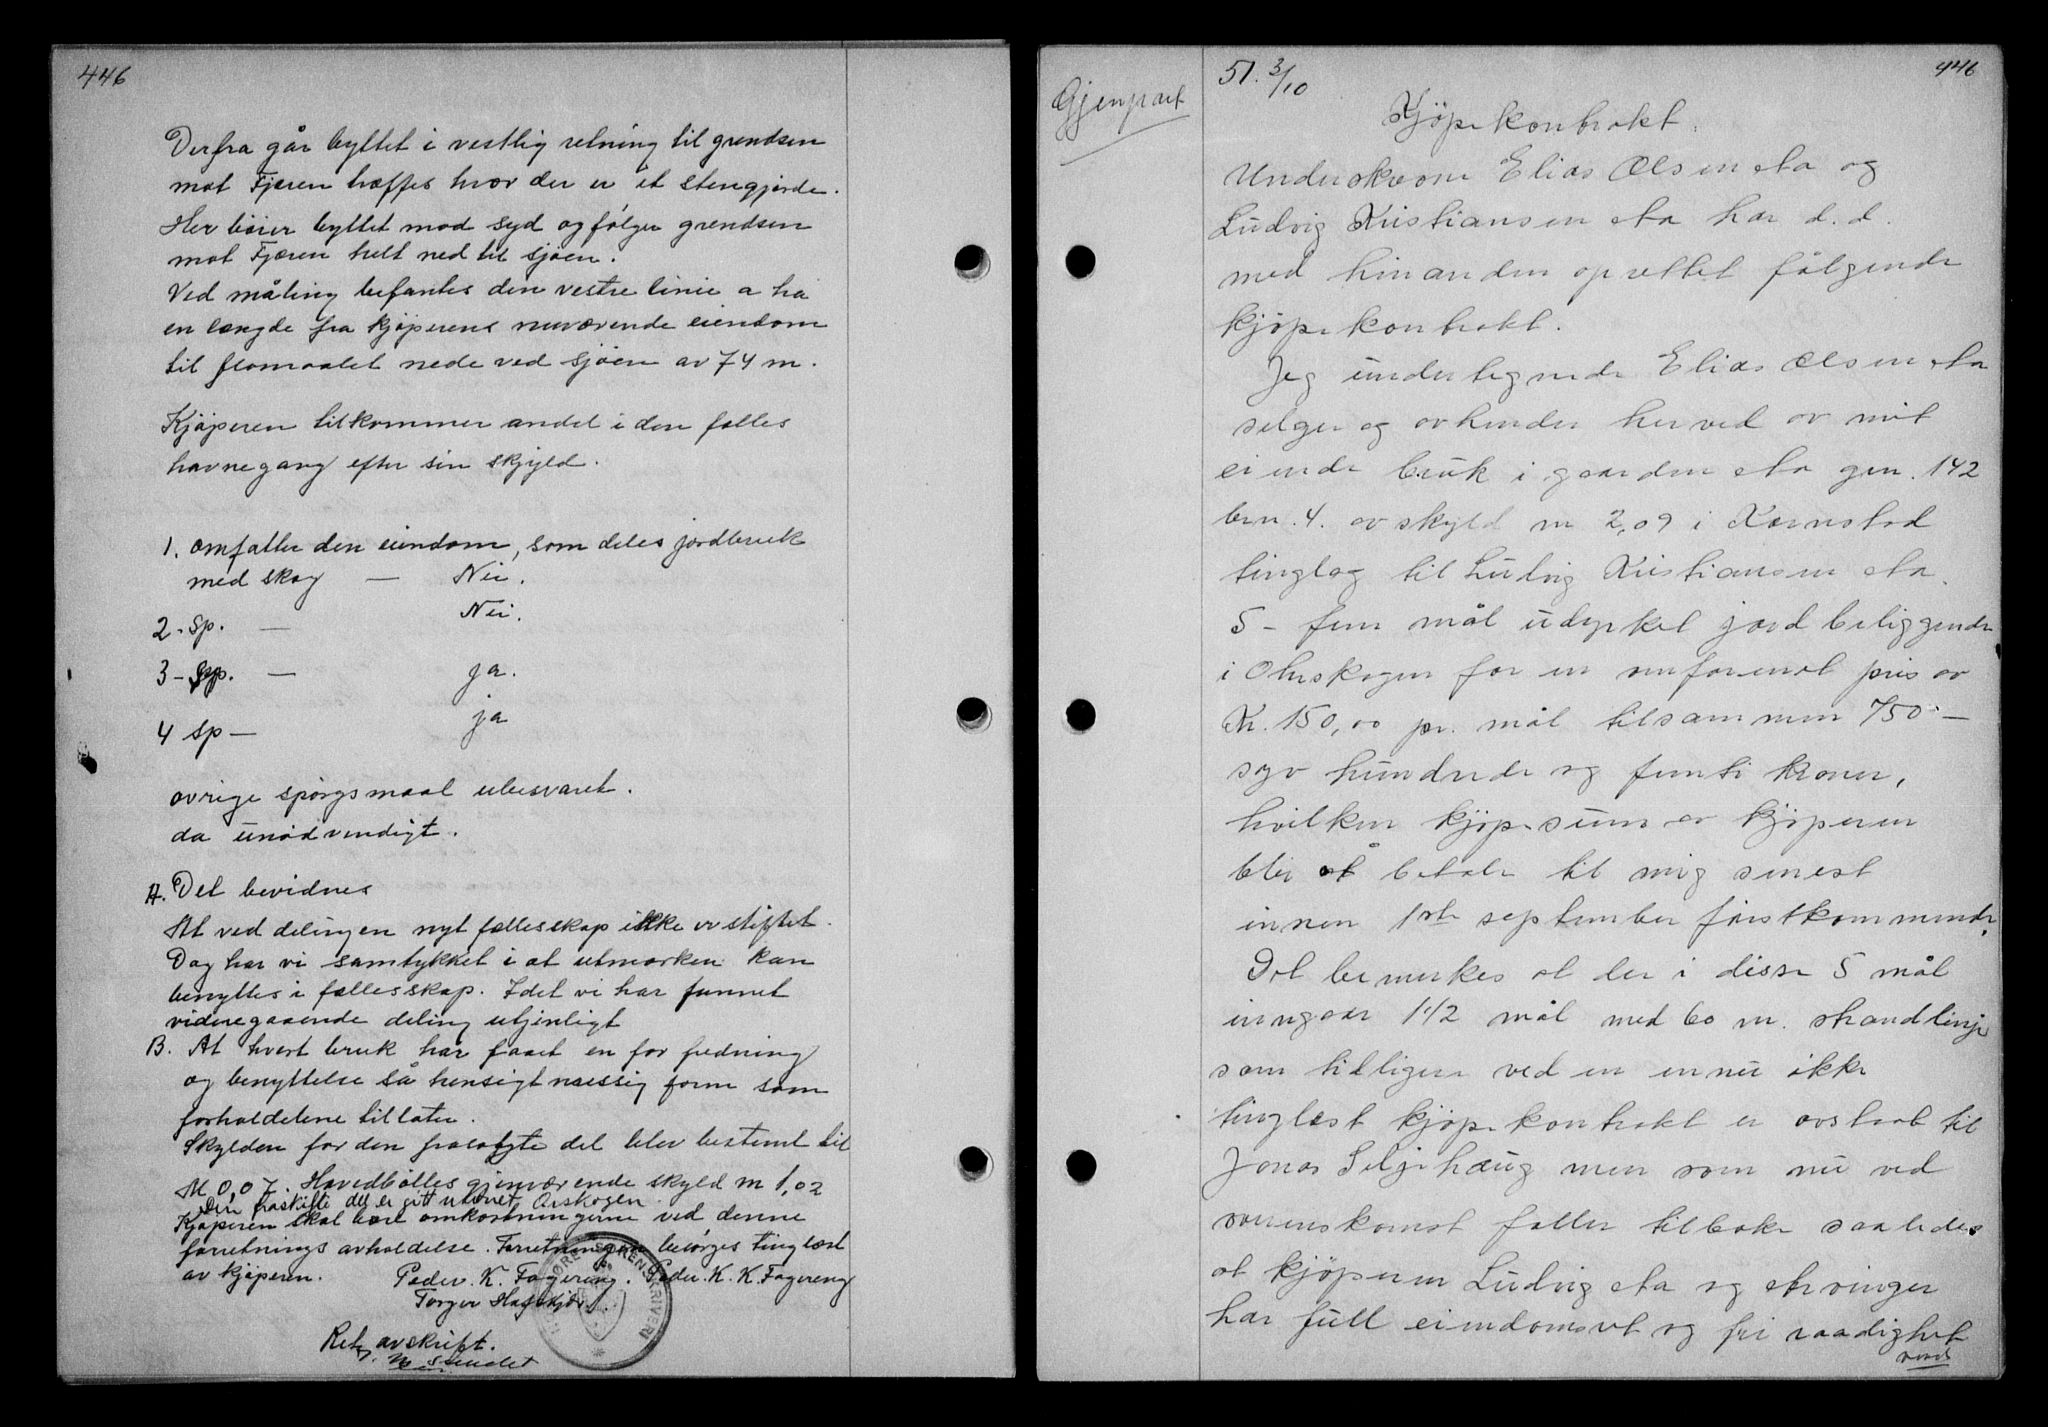 446
Derfra går byttet i vestlig retning til grendsen
mot Fjæren træffes hvor der er et stengjærde.
Her böier byttet mod syd og følger grendsen
mot Fjæren helt ned til sjöen.
Ved måling befantes den vestre linie a ha
en længde fra kjøperens nuværende eiendom
til flomaalet nede ved sjöen av 74 m.
Kjøperen tilkommer andel i den felles
havnegang efter sin skjyld.
1. omfatter den eiendom, som deles jordbruk
med skog — Nei.
2. Sp. — Nei.
3 - Sp. — ja.
4 Sp — ja
øvrige spörgsmaal ubesvaret.
da unödvendigt.
A. Det bevidnes
At ved delingen nyt fællesskap ikke er stiftet.
Dog har vi samtykket i at utmarken kan
benyttes i fællesskap. Idet vi har funnet
videregaaende deling utjenligt
B. At hvert bruk har faaet en for fredning
og benyttelse så hensigtmæssig form som
forholdelene tillater.
Skylden for den fraskyte del blev bestemt til
M 0,07. Hovedbölles gjenværende skyld m 1,02
Den fraskilte del er gitt navnet Orskogen
Kjøperen skal bære omkostningerne ved denne
forretnings avholdelse. Forretningen besörges tinglæst
av kjøperen. Peder. K. Fagereng. Peder. K. K. Fagereng
Torger Hafskjör
SORENSKRIVERI
Ret avskrift.
Gjenpart
51. 3/10
446
Kjöpekontrakt.
Underskrevne Elias Olsen Sta og
Ludvig Kristiansen Sta har d. d.
med hinanden oprettet følgende
kjöpekontrakt.
Jeg undertegnede Elias Olsen Sta
selger og avhender herved av mit
eiende bruk i gaarden Sta gnr. 142
brn. 4. av skyld m 2,09 i Kærnstad
tinglag til Ludvig Kristiansen Sta.
5 - fem mål udyrket jord beliggende
i Oluskogen for en omforenet pris av
Kr. 150,00 pr. mål tilsammen 750 —
syv hundrede og femti kroner,
hvilken kjöpesum av kjöperen
blir å betale til mig senest
innen 1ste september førstkommende.
Det bemerkes at der i disse 5 mål
inngaar 1 1/2 mål med 60 m. strandlinje
som tidligere ved en ennu ikke
tinglæst kjöpekontrakt er avstaat til
Jonas Seljehaug men som nu ved
overenskomst faller tilbake saaledes
at kjöperen Ludvig Sta og arvinger
har full eiendomsret og fri raadighet
vend